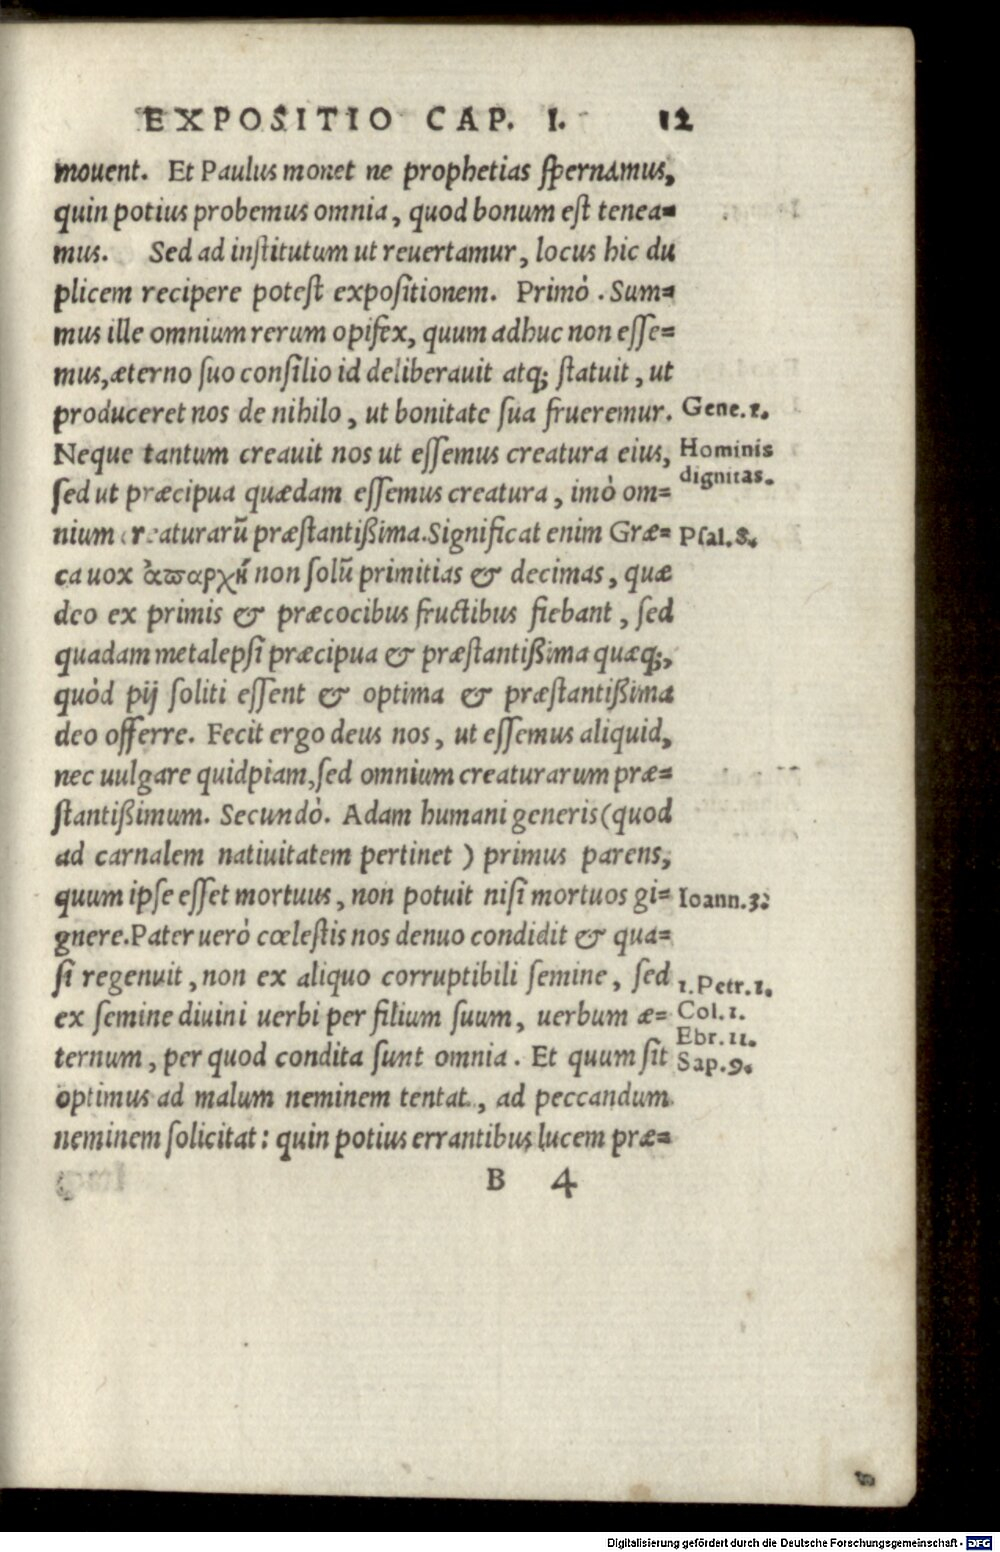 EXPOSITIO CAP. I. 12
mouent. Et Paulus monet ne prophetias ſpernamus,
quin potius probemus omnia, quod bonum eſt tenea=
mus. Sed ad inſtitutum ut reuertamur, locus hic du
plicem recipere poteſt expoſitionem. Primò. Sum=
mus ille omnium rerum opifex, quum adhuc non eſſe=
mus, æterno ſuo conſilio id deliberauit atq; ſtatuit, ut
produceret nos de nihilo, ut bonitate ſua frueremur. Gene.1.
Neque tantum creauit nos ut eſſemus creatura eius, Hominis
ſed ut præcipua quædam eſſemus creatura, imò om= dignitas.
nium creaturarũ præſtantißima. Significat enim Græ= Pſal.8.
ca uox ἀπαρχὴ non ſolũ primitias & decimas, quæ
deo ex primis & præcocibus fructibus fiebant, ſed
quadam metalepſi præcipua & præſtantißima quæq;,
quòd pij ſoliti eſſent & optima & præſtantißima
deo offerre. Fecit ergo deus nos, ut eſſemus aliquid,
nec uulgare quidpiam, ſed omnium creaturarum præ=
ſtantißimum. Secundò. Adam humani generis (quod
ad carnalem natiuitatem pertinet) primus parens,
quum ipſe eſſet mortuus, non potuit niſi mortuos gi= Ioann.3.
gnere. Pater uerò cœleſtis nos denuo condidit & qua=
ſi regenuit, non ex aliquo corruptibili ſemine, ſed 1.Petr.1.
ex ſemine diuini uerbi per filium ſuum, uerbum æ= Col.1.
Ebr.11.
ternum, per quod condita ſunt omnia. Et quum ſit Sap.9.
optimus ad malum neminem tentat, ad peccandum
neminem ſolicitat: quin potius errantibus lucem præ=
B 4
Digitalisierung gefördert durch die Deutsche Forschungsgemeinschaft - DFG